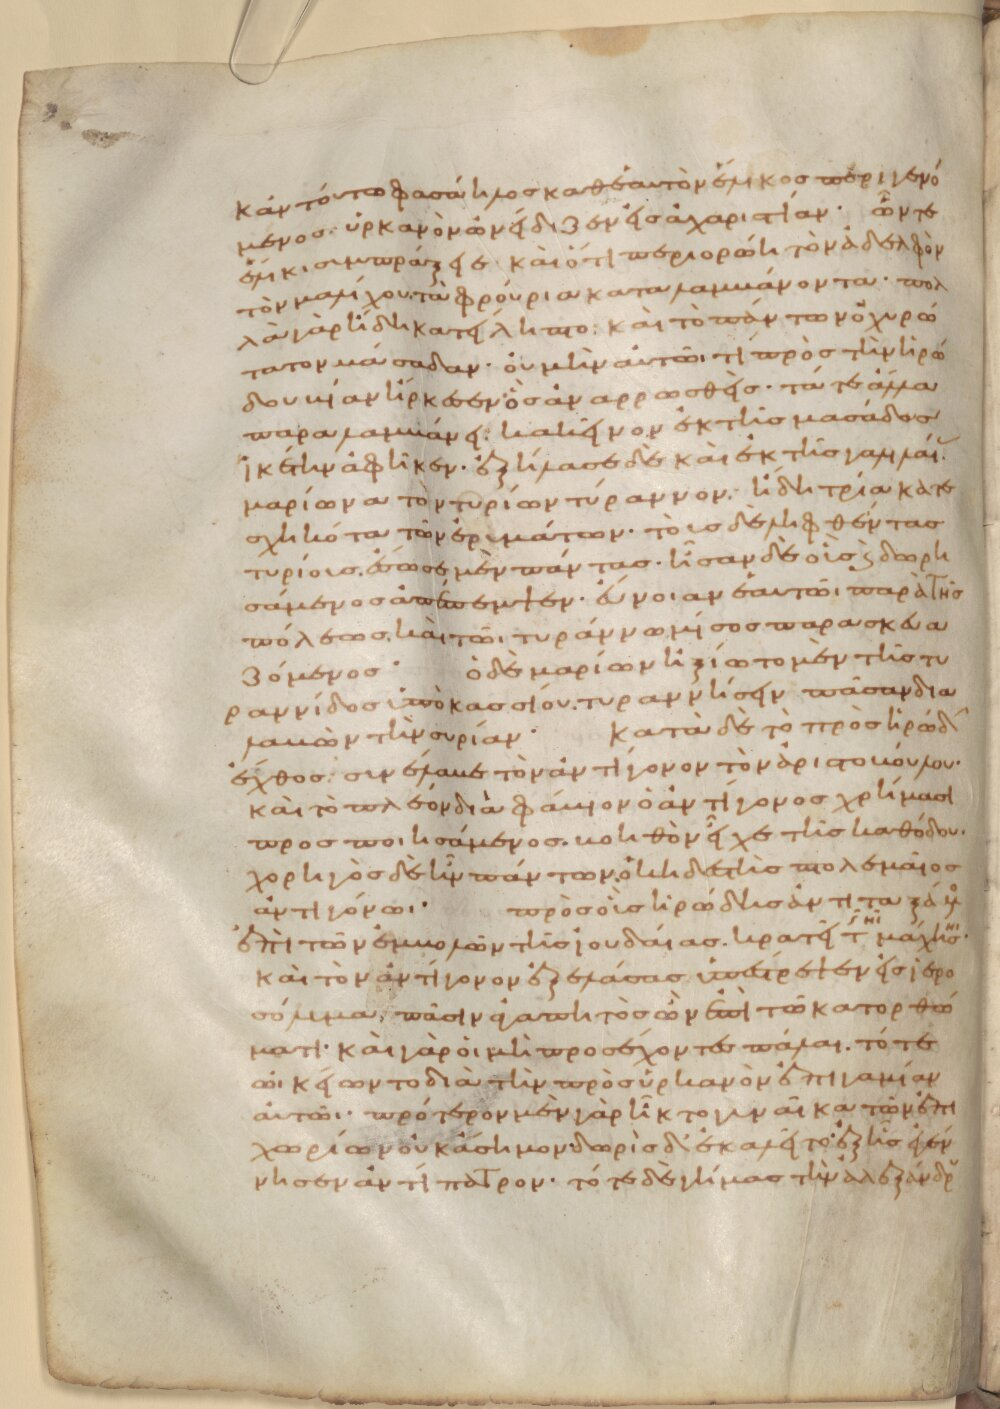 κἀν τούτω φασάηλος καθεαυτὸν ἕλικος περιγενό
μενος. ὑρκανὸν ὠνείδιζεν εἰς ἀχαριστίαν· ὧν τε
ἕλικι συμπράξειε καὶ ὅτι περιορώη τὸν ἀδελφὸν
τὸν μαλίχου. τὰ φρούρια καταλαμβάνοντα· πολ
λὰ γὰρ ἤδη κατείληπτο. καὶ τὸ πάντων ὀχυρώ
τατον μάσαδαν· οὐ μὴν αὐτῶι τὶ πρὸς τὴν ἡρώ
δου βίαν ἤρκεσεν· ὃς ἀναρρωσθεὶς· τά τε ἄλλα
παραλαμβάνει. κακεῖνον ἐκ τῆς μασάδας
ἱκέτην ἀφῆκεν· ἐξήλασε δὲ καὶ ἐκ τῆς γαλιλαί
μαρίωνα τὸν τυρίων τύραννον. ἤδη τρία κατε
σχηκότα τῶν ἐρυμάτων· τοὺς δὲ ληφθέντας
τυρίους. ἔσωσε μὲν πάντας· ἦσαν δὲ οὓς ϗ δωρη
σάμενος ἀπέπεμψεν· εὔνοιαν ἑαυτῶι παρὰ τῆς
πόλεως. καὶ τῶι τυράννω μίσος παρασκευα
ζόμενος· ὁ δὲ μαρίων ἠξίωτο μὲν τῆς τυ
ραννίδος ὑπὸ κασσίου. τυραννήσειν πᾶσαν δια
λαβὼν τὴν συρίαν· κατὰ δὲ τὸ πρὸς ἡρώδην
ἔχθος. συνέλαβε τὸν ἀντίγονον τὸν ἀριστοβούλου·
καὶ τὸ πλέον διὰ φάβιον ὁ ἀντίγονος χρήμασι
προσποιησάμενος. βοηθὸν εἶχε τῆς καθόδου·
χορηγὸς δὲ ἦν πάντων ὁ κηδεστὴς πτολεμαῖος
ἀντιγόνωι· πρὸς οὓς ἡρώδης ἀντιταξάμ
ἐπὶ τῶν ἐμβολῶν τῆς ἰουδαίας. κρατεῖ τῆι μάχηι·
καὶ τὸν ἀντίγονον ἐξελάσας. ὑπέστρεψεν εἰς ἱερο
σόλυμα. πᾶσιν ἀγαπητὸς ὢν ἐπὶ τῶ κατορθώ
ματι· καὶ γὰρ οἱ μὴ προσέχοντες πάλαι. τότε
ὠικείωντο διὰ τὴν πρὸς ὑρκανὸν ἐπιγαμίαν
αὐτῶι· πρότερον μὲν γὰρ ἦκτο γυναῖκα τῶν ἐπι
χωρίων οὐκ ἄσημον· δωρὶς δ' ἐκαλεῖτο· ἐξ ἧς ἐγέν
νησεν ἀντίπατρον· τότε δὲ γήμας τὴν ἀλεξάνδρ